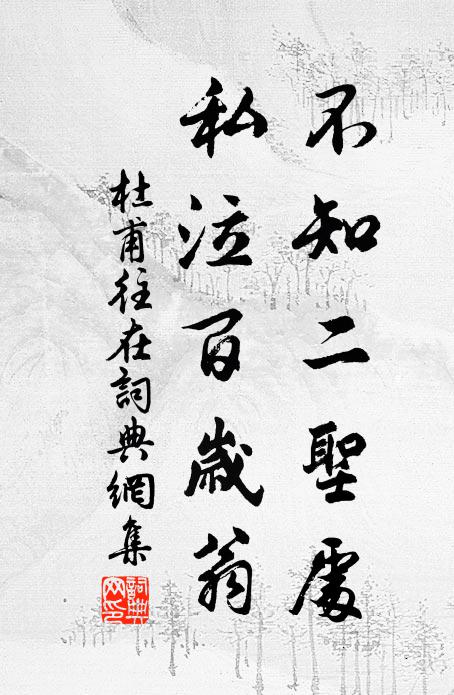 不知二聖處
私泣百歲翁
杜甫往在詞典網集
詞典網印